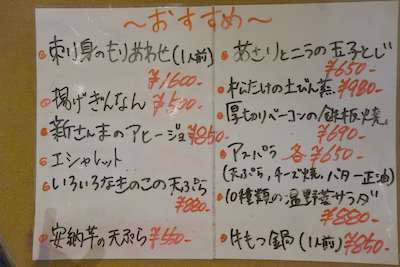 〜おすすめ〜
刺り身のもりあわせ(1人前)
¥1600-
揚げぎんなん ¥500-
新さんまのアヒージョ ¥850-
エシャレット
いろいろなきのこの天ぷら
¥880-
安納芋の天ぷら ¥550-
あさりとニラの玉子とじ
¥650-
松たけの土びん蒸 ¥980-
厚切りベーコンの鉄板焼
¥690-
アスパラ 各¥650-
(天ぷら,チーズ焼,バター正油)
10種類の温野菜サラダ
¥880-
牛もつ鍋(1人前) ¥850-